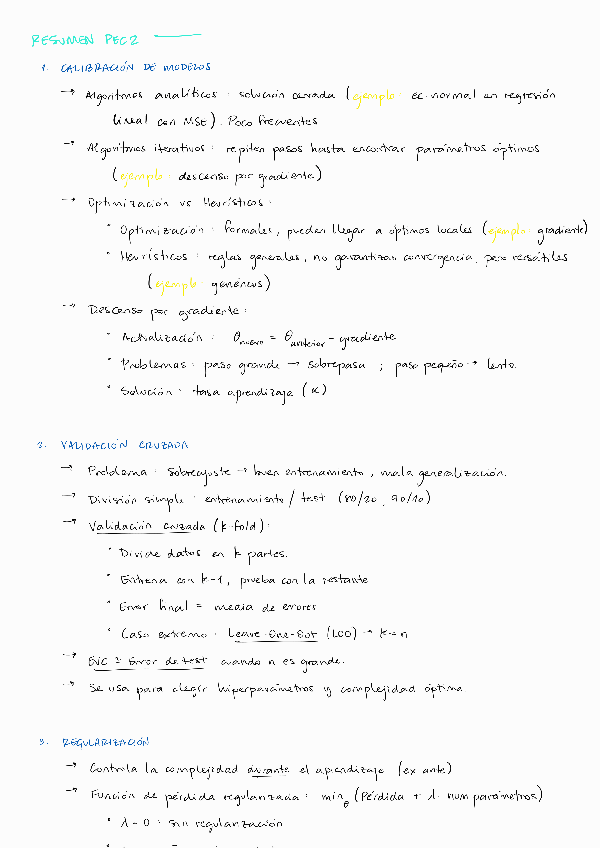 RESUMEN PEC2
1. CALIBRACIÓN DE MODELOS
→ Algoritmos analíticos: solución cerrada (ejemplo: ec. normal en regresión
lineal con MSE). Poco frecuentes
→ Algoritmos iterativos: repiten pasos hasta encontrar parámetros óptimos
(ejemplo: descenso por gradiente)
→ Optimización vs Heurísticos:
· Optimización: formales, pueden llegar a óptimos locales (ejemplo: gradiente)
· Heurísticos: reglas generales, no garantizan convergencia, pero versátiles
(ejemplo: genéricos)
→ Descenso por gradiente:
· Actualización: θnuevo = θanterior - gradiente
· Problemas: paso grande → sobrepasa ; paso pequeño → lento.
· Solución: tasa aprendizaje (α)
2. VALIDACIÓN CRUZADA
→ Problema: Sobreajuste → buen entrenamiento, mala generalización.
→ División simple: entrenamiento / test (80/20, 90/10)
→ Validación cruzada (k-fold):
· Divide datos en k partes.
· Entrena con k-1, prueba con la restante
· Error final = media de errores
· Caso extremo: Leave-One-Out (LOO) → k=n
→ Error de test cuando n es grande.
→ Se usa para elegir hiperparámetros y complejidad óptima.
3. REGULARIZACIÓN
→ Controla la complejidad durante el aprendizaje (ex ante)
→ Función de pérdida regularizada: minθ (Pérdida + λ · num parámetros)
· λ = 0: sin regularización